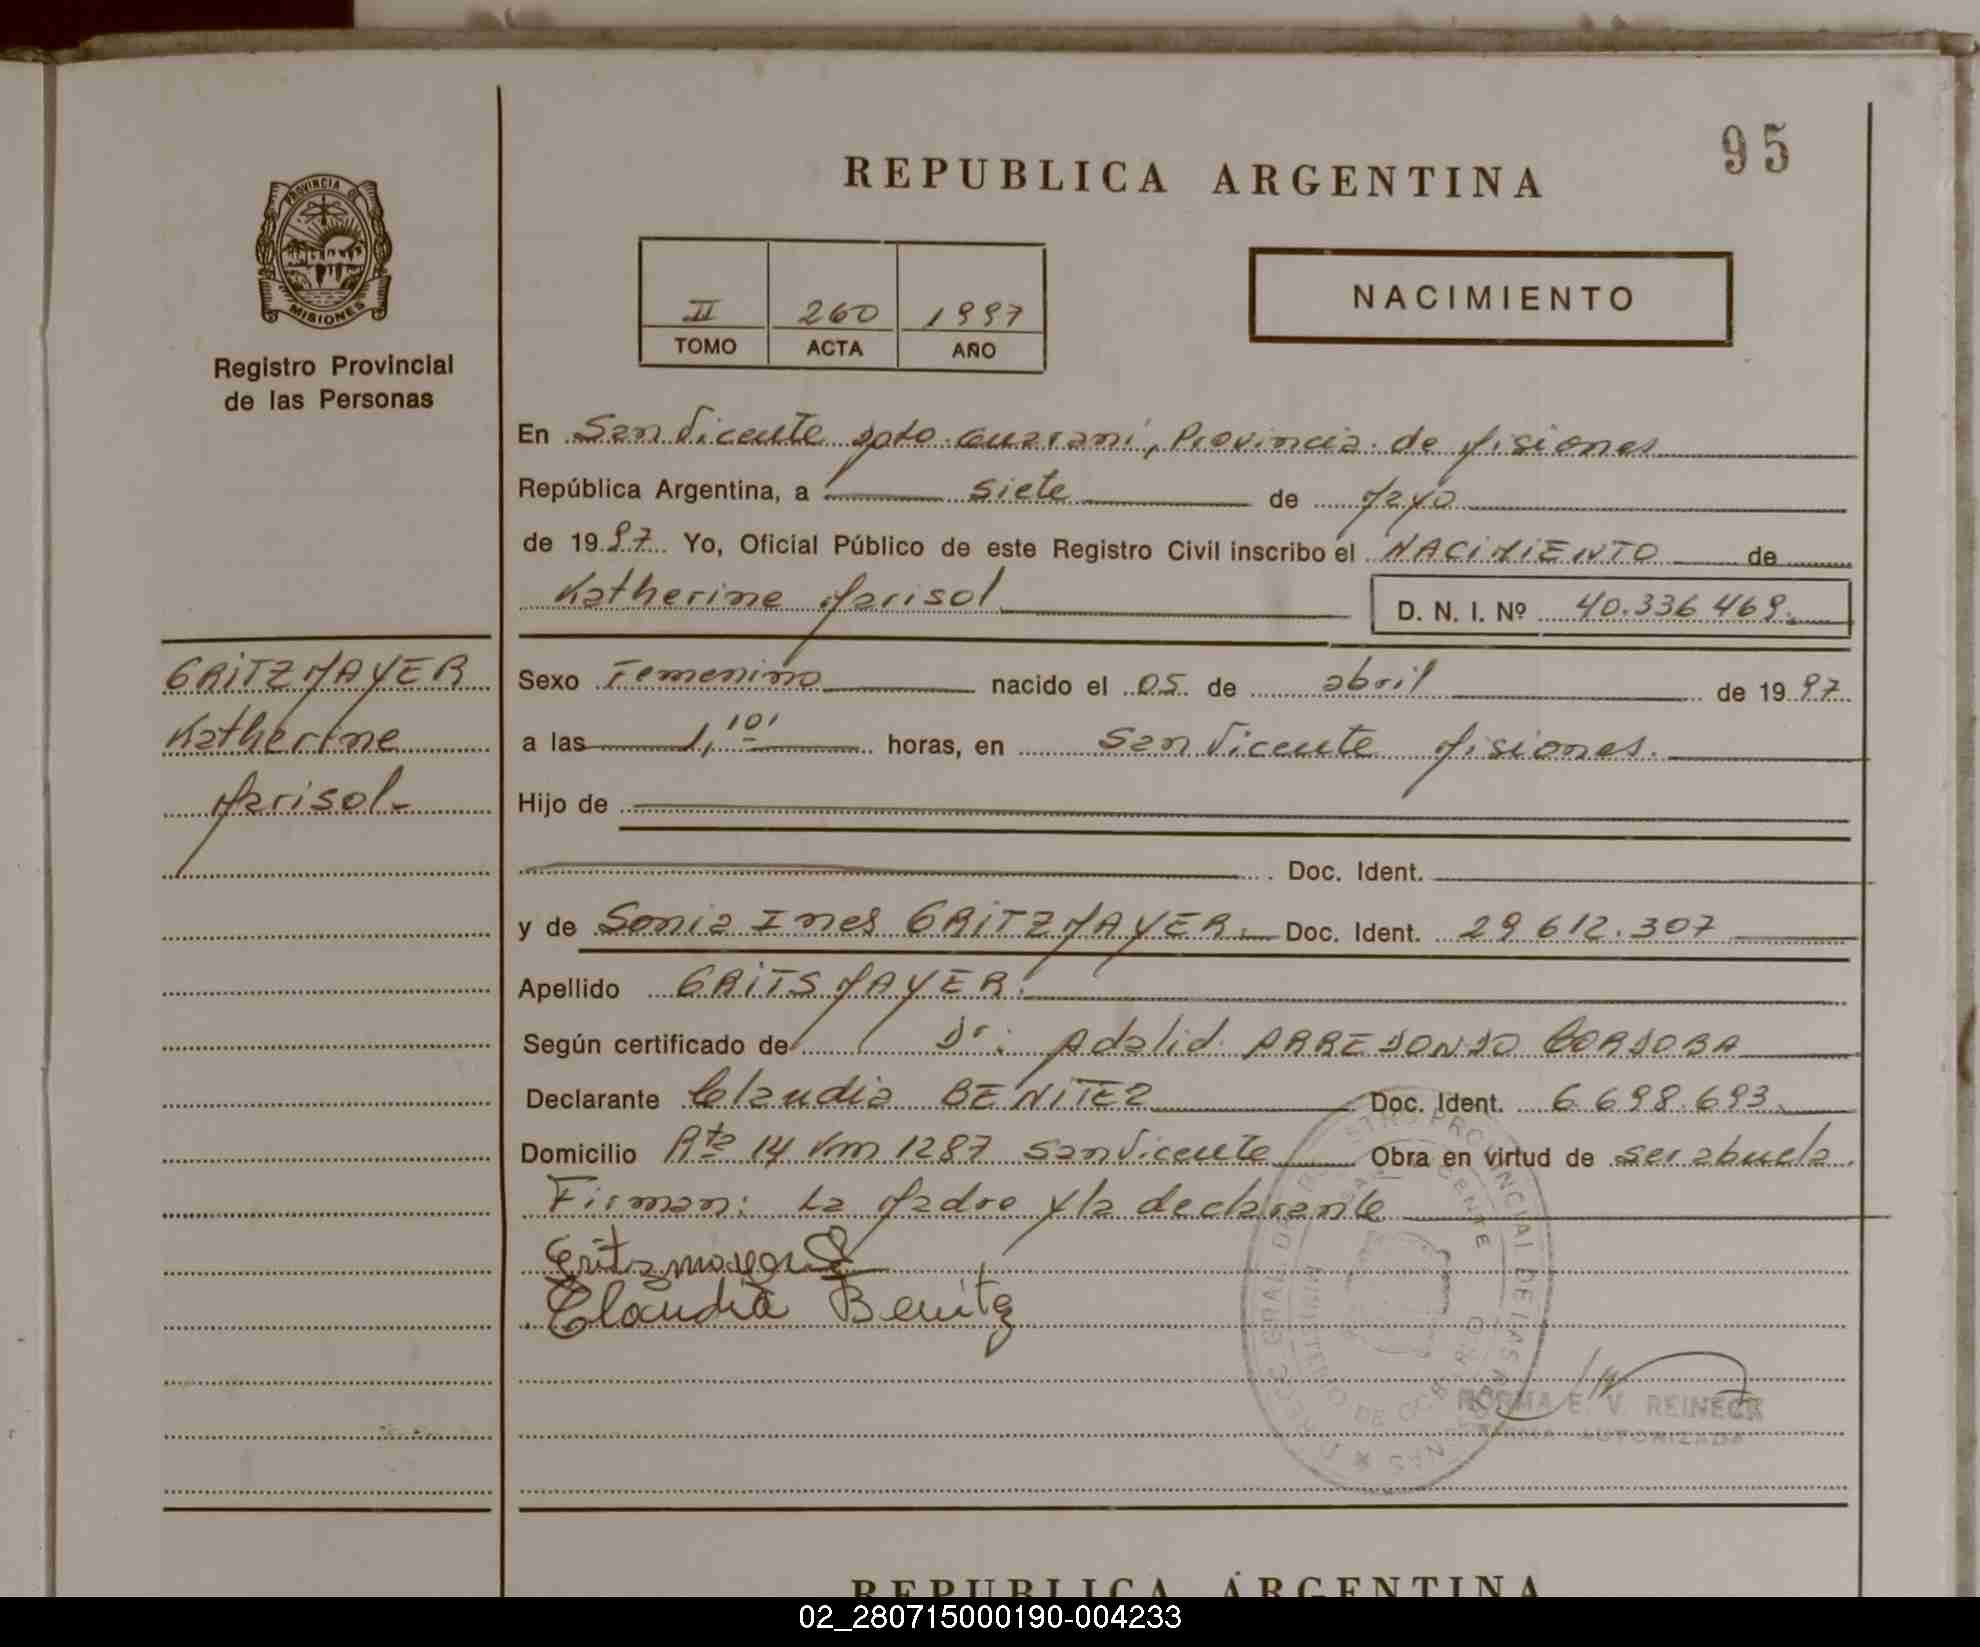 95
REPUBLICA ARGENTINA
PROVINCIA DE
MISIONES
Registro Provincial
de las Personas
II 260 1997
TOMO ACTA AÑO
NACIMIENTO
En San Vicente Dpto. Guaraní, Provincia de Misiones
República Argentina, a siete de Mayo
de 1997 Yo, Oficial Público de este Registro Civil inscribo el NACIMIENTO de
Katherine Marisol D. N. I. Nº 40.336.469.
GRITZMAYER
Katherine
Marisol.
Sexo Femenino nacido el 05 de abril de 1997
a las 1,10' horas, en San Vicente Misiones.
Hijo de
Doc. Ident.
y de Sonia Ines GRITZMAYER. Doc. Ident. 29 612.307
Apellido GRITSMAYER.
Según certificado de Dr: Adalid ARREDONDO CORDOBA
Declarante Claudia BENITEZ Doc. Ident. 6.698.693.
Domicilio Rta 14 Km 1287 San Vicente Obra en virtud de ser abuela.
Firman: La Madre y la declarante
Gritzmayer S
Claudia Benitez
NORMA E. V. REINECK
FIRMA AUTORIZADA
REPUBLICA ARGENTINA
02_280715000190-004233